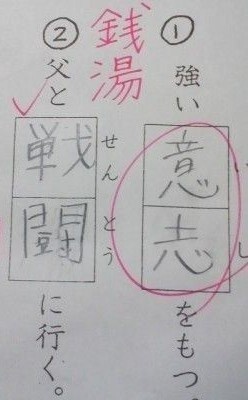 ① 強い意志をもつ。
いし
② 父と戦闘に行く。
せんとう
銭湯